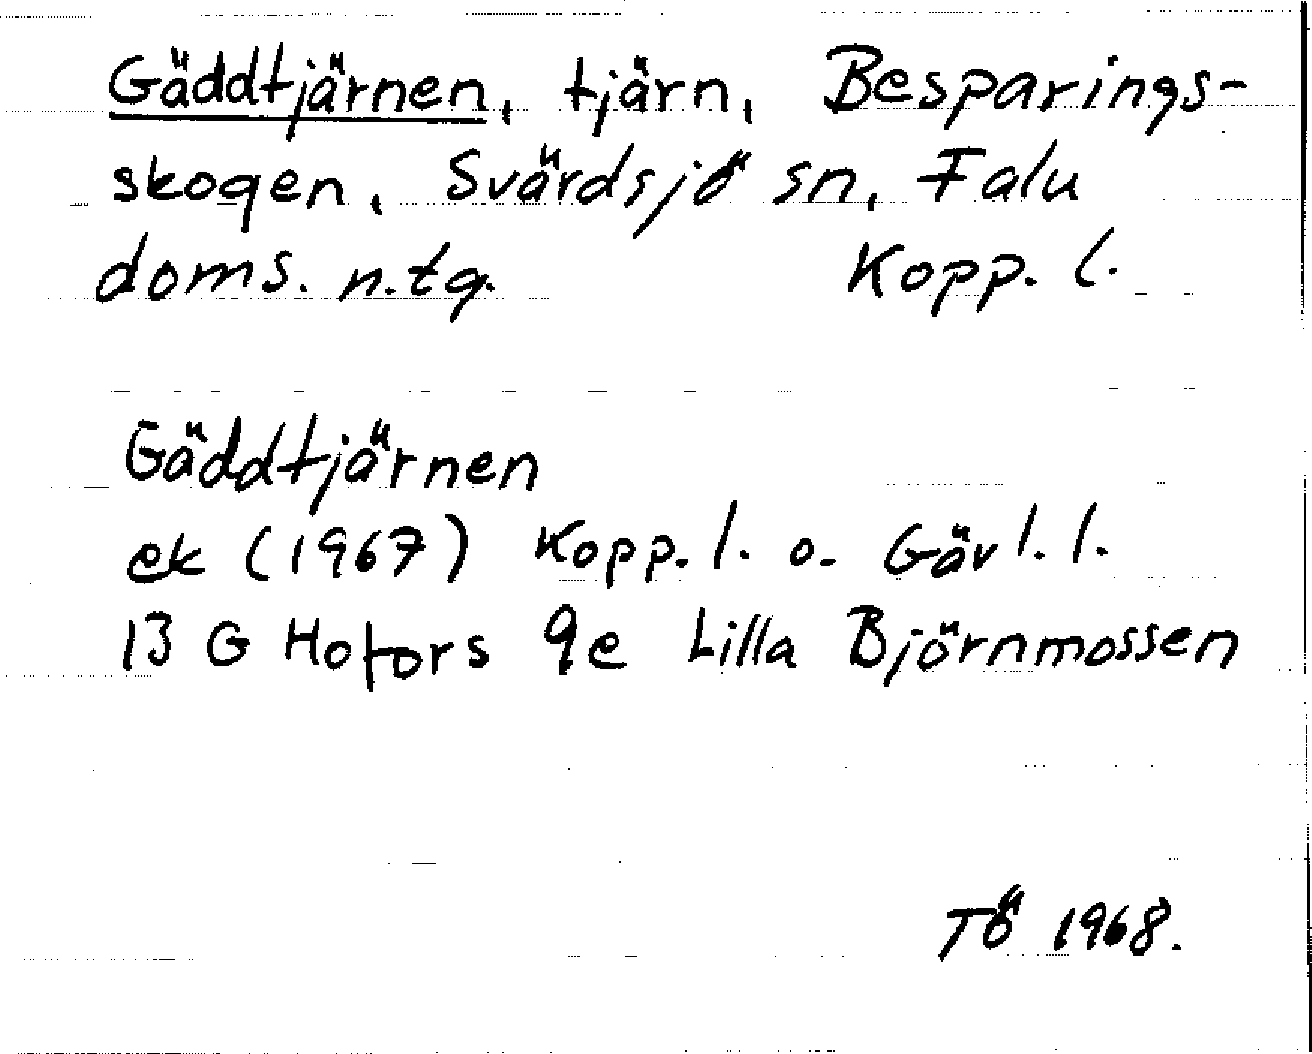 Gäddtjärnen, tjärn, Besparings-
skogen, Svärdsjö sn, Falu
doms. n.tg. Kopp. l.
Gäddtjärnen
ek (1967) Kopp. l. o. Gävl. l.
13 G Hofors 9e Lilla Björnmossen
TÖ 1968.